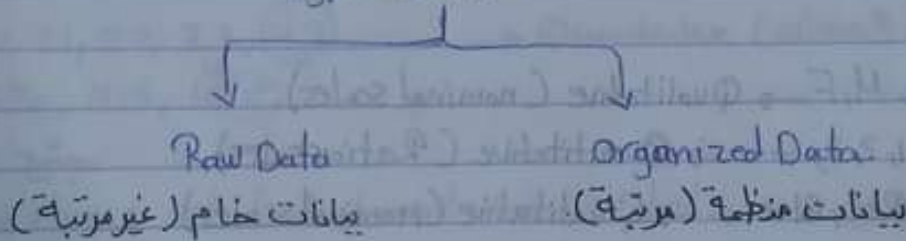 Raw Data Organized Data
بيانات خام (غير مرتبة) بيانات منظمة (مرتبة)